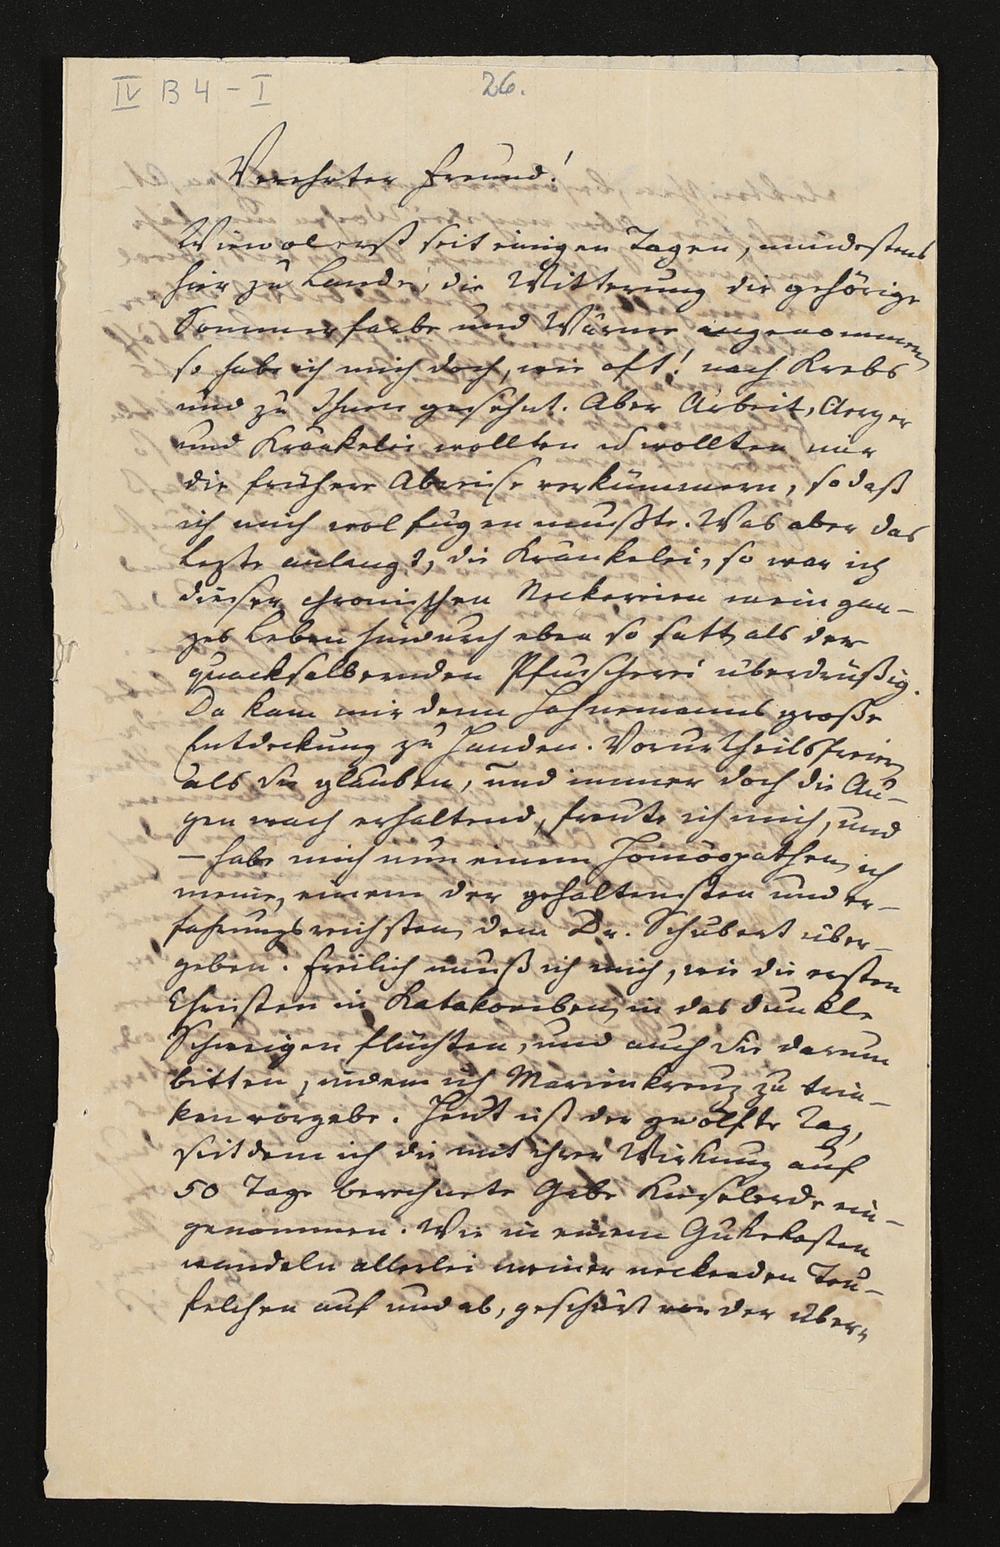 IV B 4 - I
26.
Verehrter Freund!
Wiewol erst seit einigen Tagen, mindestens
hier zu Lande, die Witterung die gehörige
Sommerfarbe und Wärme angenommen
so habe ich mich doch, wie oft! nach Krebs
und zu Ihnen gesehnt. Aber Arbeit, Aerger
und Kränkelei wollten u wollten mir
die frühere Abreise verkümmern, so daß
ich mich wol fügen mußte. Was aber das
Lezte anlangt, die Kränkelei, so war ich
dieser chronischen Neckereien mein gan-
zes Leben hindurch eben so satt als der
quacksalbernden Pfuscherei überdrüßig.
Da kam mir denn Hahnemanns große
Entdeckung zu Handen. Vorurtheilsfreier
als Sie glauben, und immer doch die Au-
gen wach erhaltend, freute ich mich, und
– habe mich nun einem Homöopathen, ich
meine, einem der gehaltensten und er-
fahrungsreichsten, dem Dr. Schubert über-
geben. Freilich muß ich mich, wie die ersten
Christen in Katakomben, in das dunkle
Schweigen flüchten, und auch Sie darum
bitten, indem ich Marienkreuz zu trin-
ken vorgebe. Heut ist der zwölfte Tag,
seitdem ich die mit ihrer Wirkung auf
50 Tage berechnete Gabe Kieselerde ein-
genommen. Wie in einem Gukekasten
wandeln allerlei meiner neckenden Teu-
felchen auf und ab, geschürt von der über-